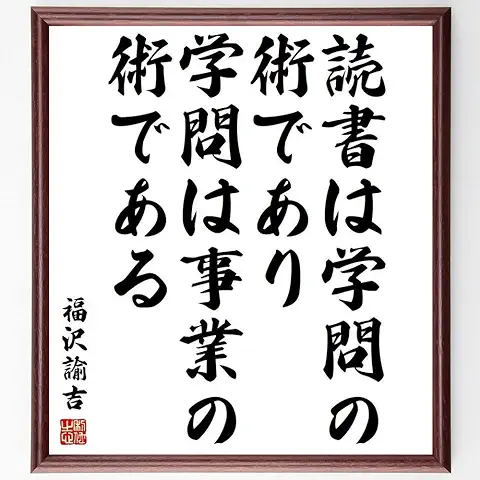 読書は学問の
術であり
学問は事業の
術である
福沢諭吉